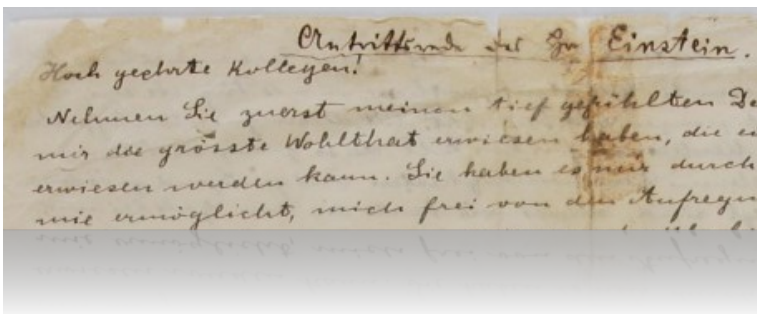 Antrittsrede des Hr Einstein.
Hoch geehrte Kollegen!
Nehmen Sie zuerst meinen tief gefühlten De
mir die grösste Wohlthat erwiesen haben, die ei
erwiesen werden kann. Sie haben es mir durch
mie ermöglicht, mich frei von den Aufregun